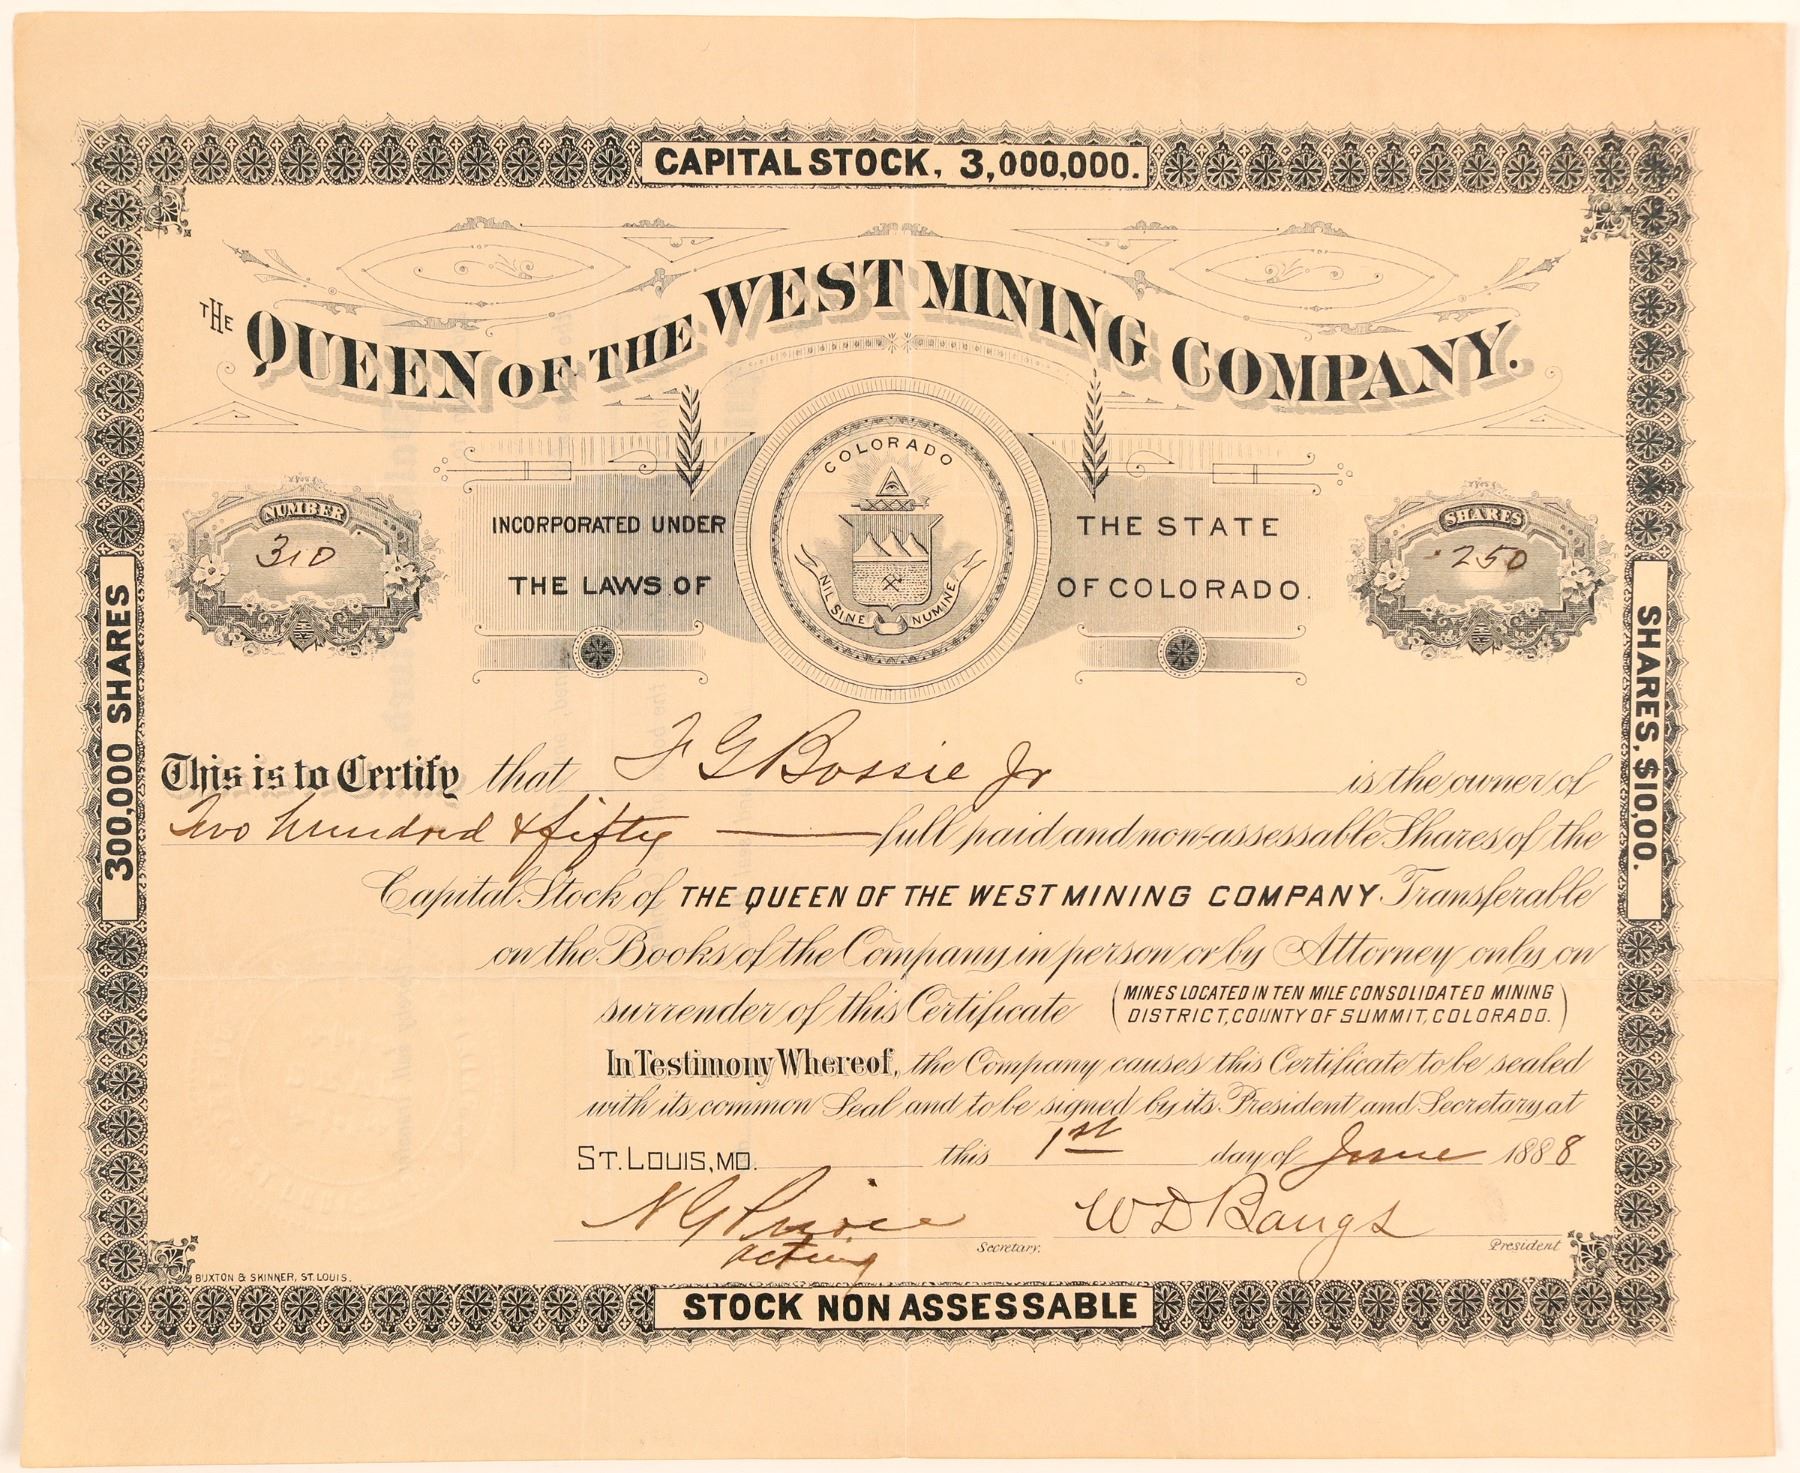 CAPITAL STOCK, 3,000,000.
THE QUEEN OF THE WEST MINING COMPANY.
COLORADO
NIL SINE NUMINE
NUMBER
310
INCORPORATED UNDER THE STATE
THE LAWS OF OF COLORADO.
SHARES
250
300,000 SHARES
SHARES, $10,00.
This is to Certify that F G Bossie Jr is the owner of
Two hundred & fifty full paid and non-assessable Shares of the
Capital Stock of THE QUEEN OF THE WEST MINING COMPANY Transferable
on the Books of the Company in person or by Attorney only on
surrender of this Certificate
(MINES LOCATED IN TEN MILE CONSOLIDATED MINING
DISTRICT, COUNTY OF SUMMIT, COLORADO.)
In Testimony Whereof, the Company causes this Certificate to be sealed
with its common Seal and to be signed by its President and Secretary at
ST. LOUIS, MO. this 1st day of June 1888
N G
acting
Secretary.
W D Bangs
President
BUXTON & SKINNER, ST. LOUIS.
STOCK NON ASSESSABLE